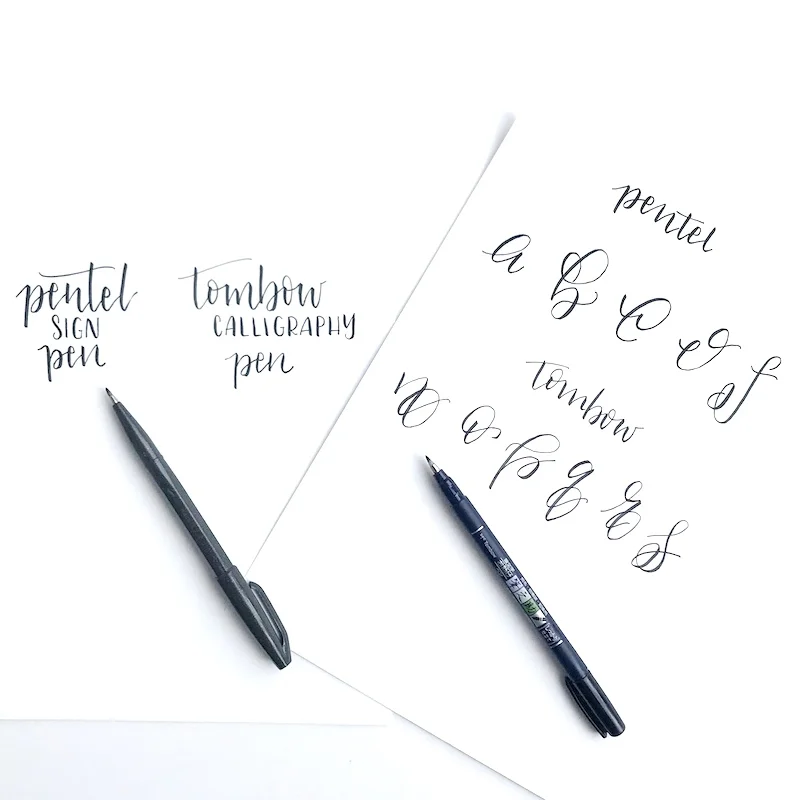 pentel
SIGN
pen
tombow
CALLIGRAPHY
pen
pentel
a b c d
tombow
n o p q